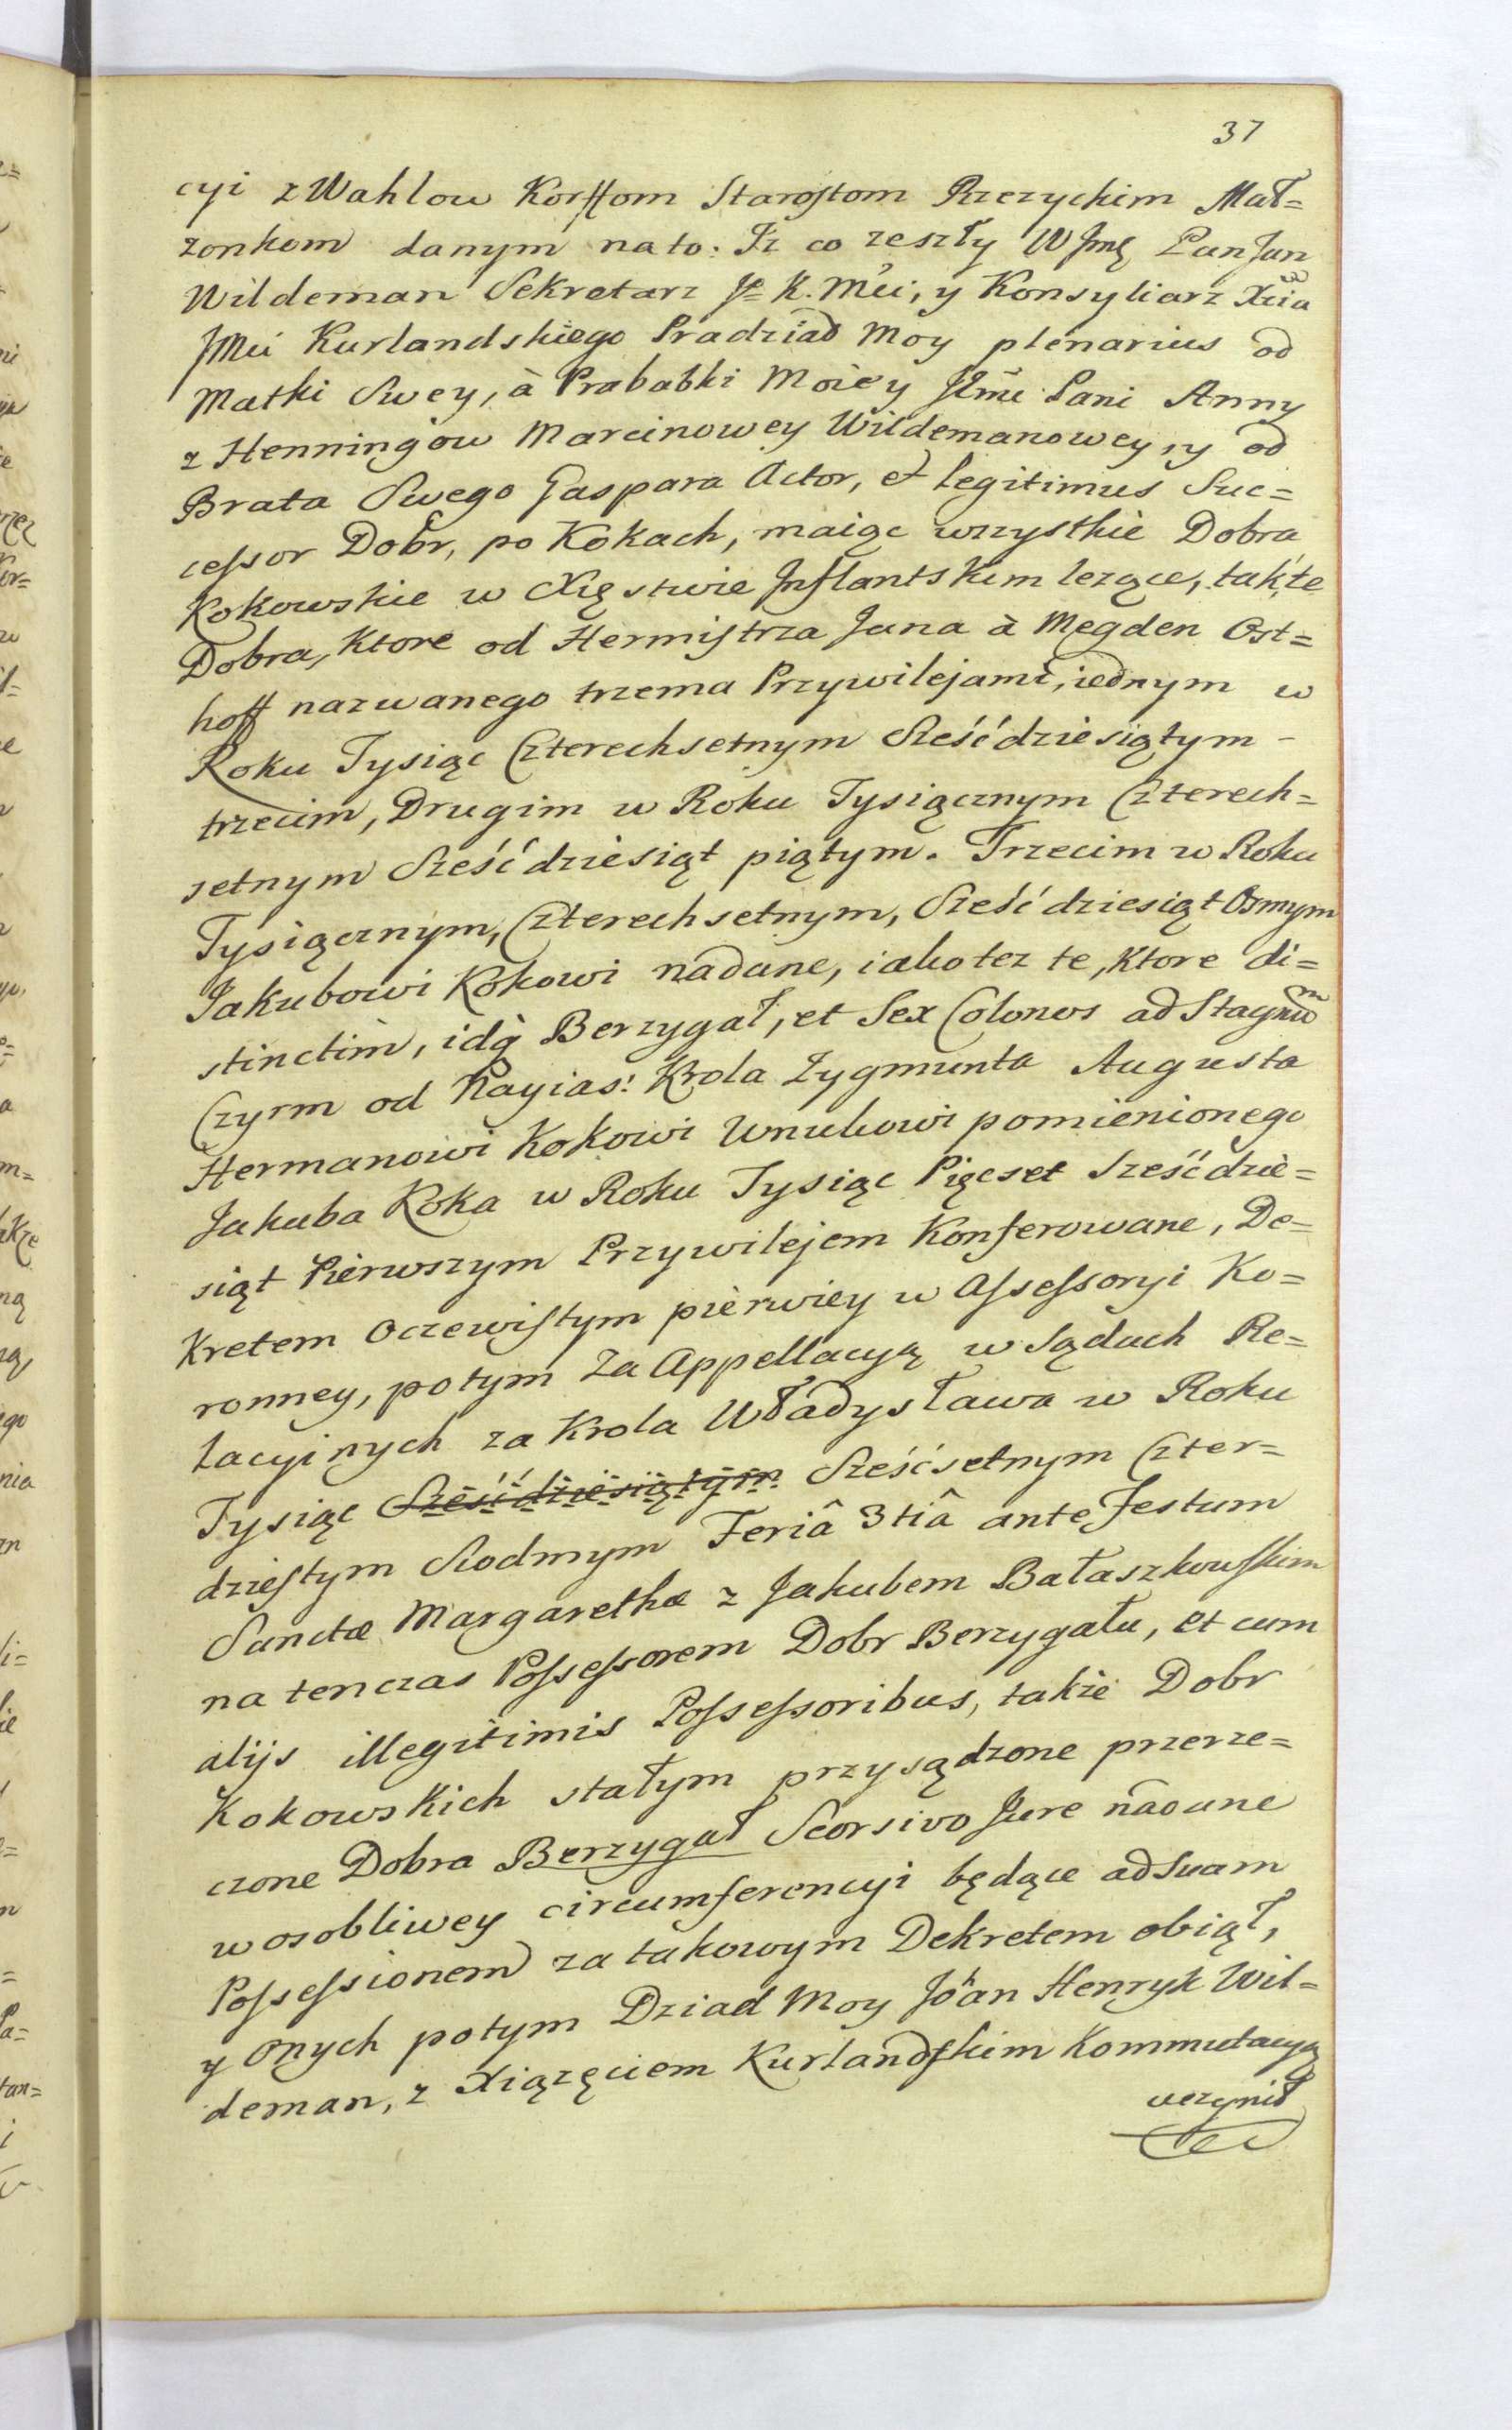 37
cyi z Wahlow Korffom Starostom Rzezyckim Mał=
zonkom danym na to: Iz co zeszły W Jmę Pan Jan
Wildeman Sekretarz J. K. Mci, y Konsyliarz Xcia
JMci Kurlandskiego Pradziad Moy plenarius od
Matki Swey, à Prababki Moiey Jeỹmci Pani Anny
z Henningow Marcinowey Wildemanowey, y od
Brata Swego Gaspara Actor, et legitimus Suc=
cessor Dobr, po Kokach, maiąc wszystkie Dobra
Kokowskie w Xięstwie Inflantskim lezące, tak te
Dobra, Ktore od Hermistrza Jana à Megden Ost=
hoff nazwanego trzema Przywilejami, iednym w
Roku Tysiąc Czterechsetnym Sześćdziesiątym -
trzecim, Drugim w Roku Tysiącznym Czterech=
setnym Sześćdziesiąt piątym. Trzecim w Roku
Tysiącznym, Czterechsetnym, Sześćdziesiąt Osmym
Jakubowi Kokowi nadane, iako tez te, Ktore di=
stinctim, idq̀ Berzygał, et Sex Colonos ad Stagnum
Czyrm od Nayias: Krola Zygmunta Augusta
Hermanowi Kokowi Wnukowi pomienionego
Jakuba Koka w Roku Tysiąc Pięcset Sześćdzie=
siąt Pierwszym Przywilejem Konferowane, De=
kretem Oczewistym pierwiey w Assessoryi Ko=
ronney, potym Za Appellacyą w Sądach Re=
lacyinych za Krola Władysława w Roku
Tysiąc Sześćdziesiątym Sześćsetnym Czter=
dziestym Siodmym Feriâ 3tiâ ante Festum
Sanctæ Margarethæ z Jakubem Bałaszkowskim
na tenczas Possessorem Dobr Berzygału, et cum
alijs illegitimis Possessoribus, takie Dobr
Kokowskich stałym przysądzone przerze=
czone Dobra Berzygał Seorsivo Jure nadane
w osobliwey circumferencyi będące ad Suam
Possessionem za takowym Dekretem obiął,
y onych potym Dziad Moy Johan Henryk Wil=
deman, z Xiążęciem Kurlandskim Kommutacyą
uczynił